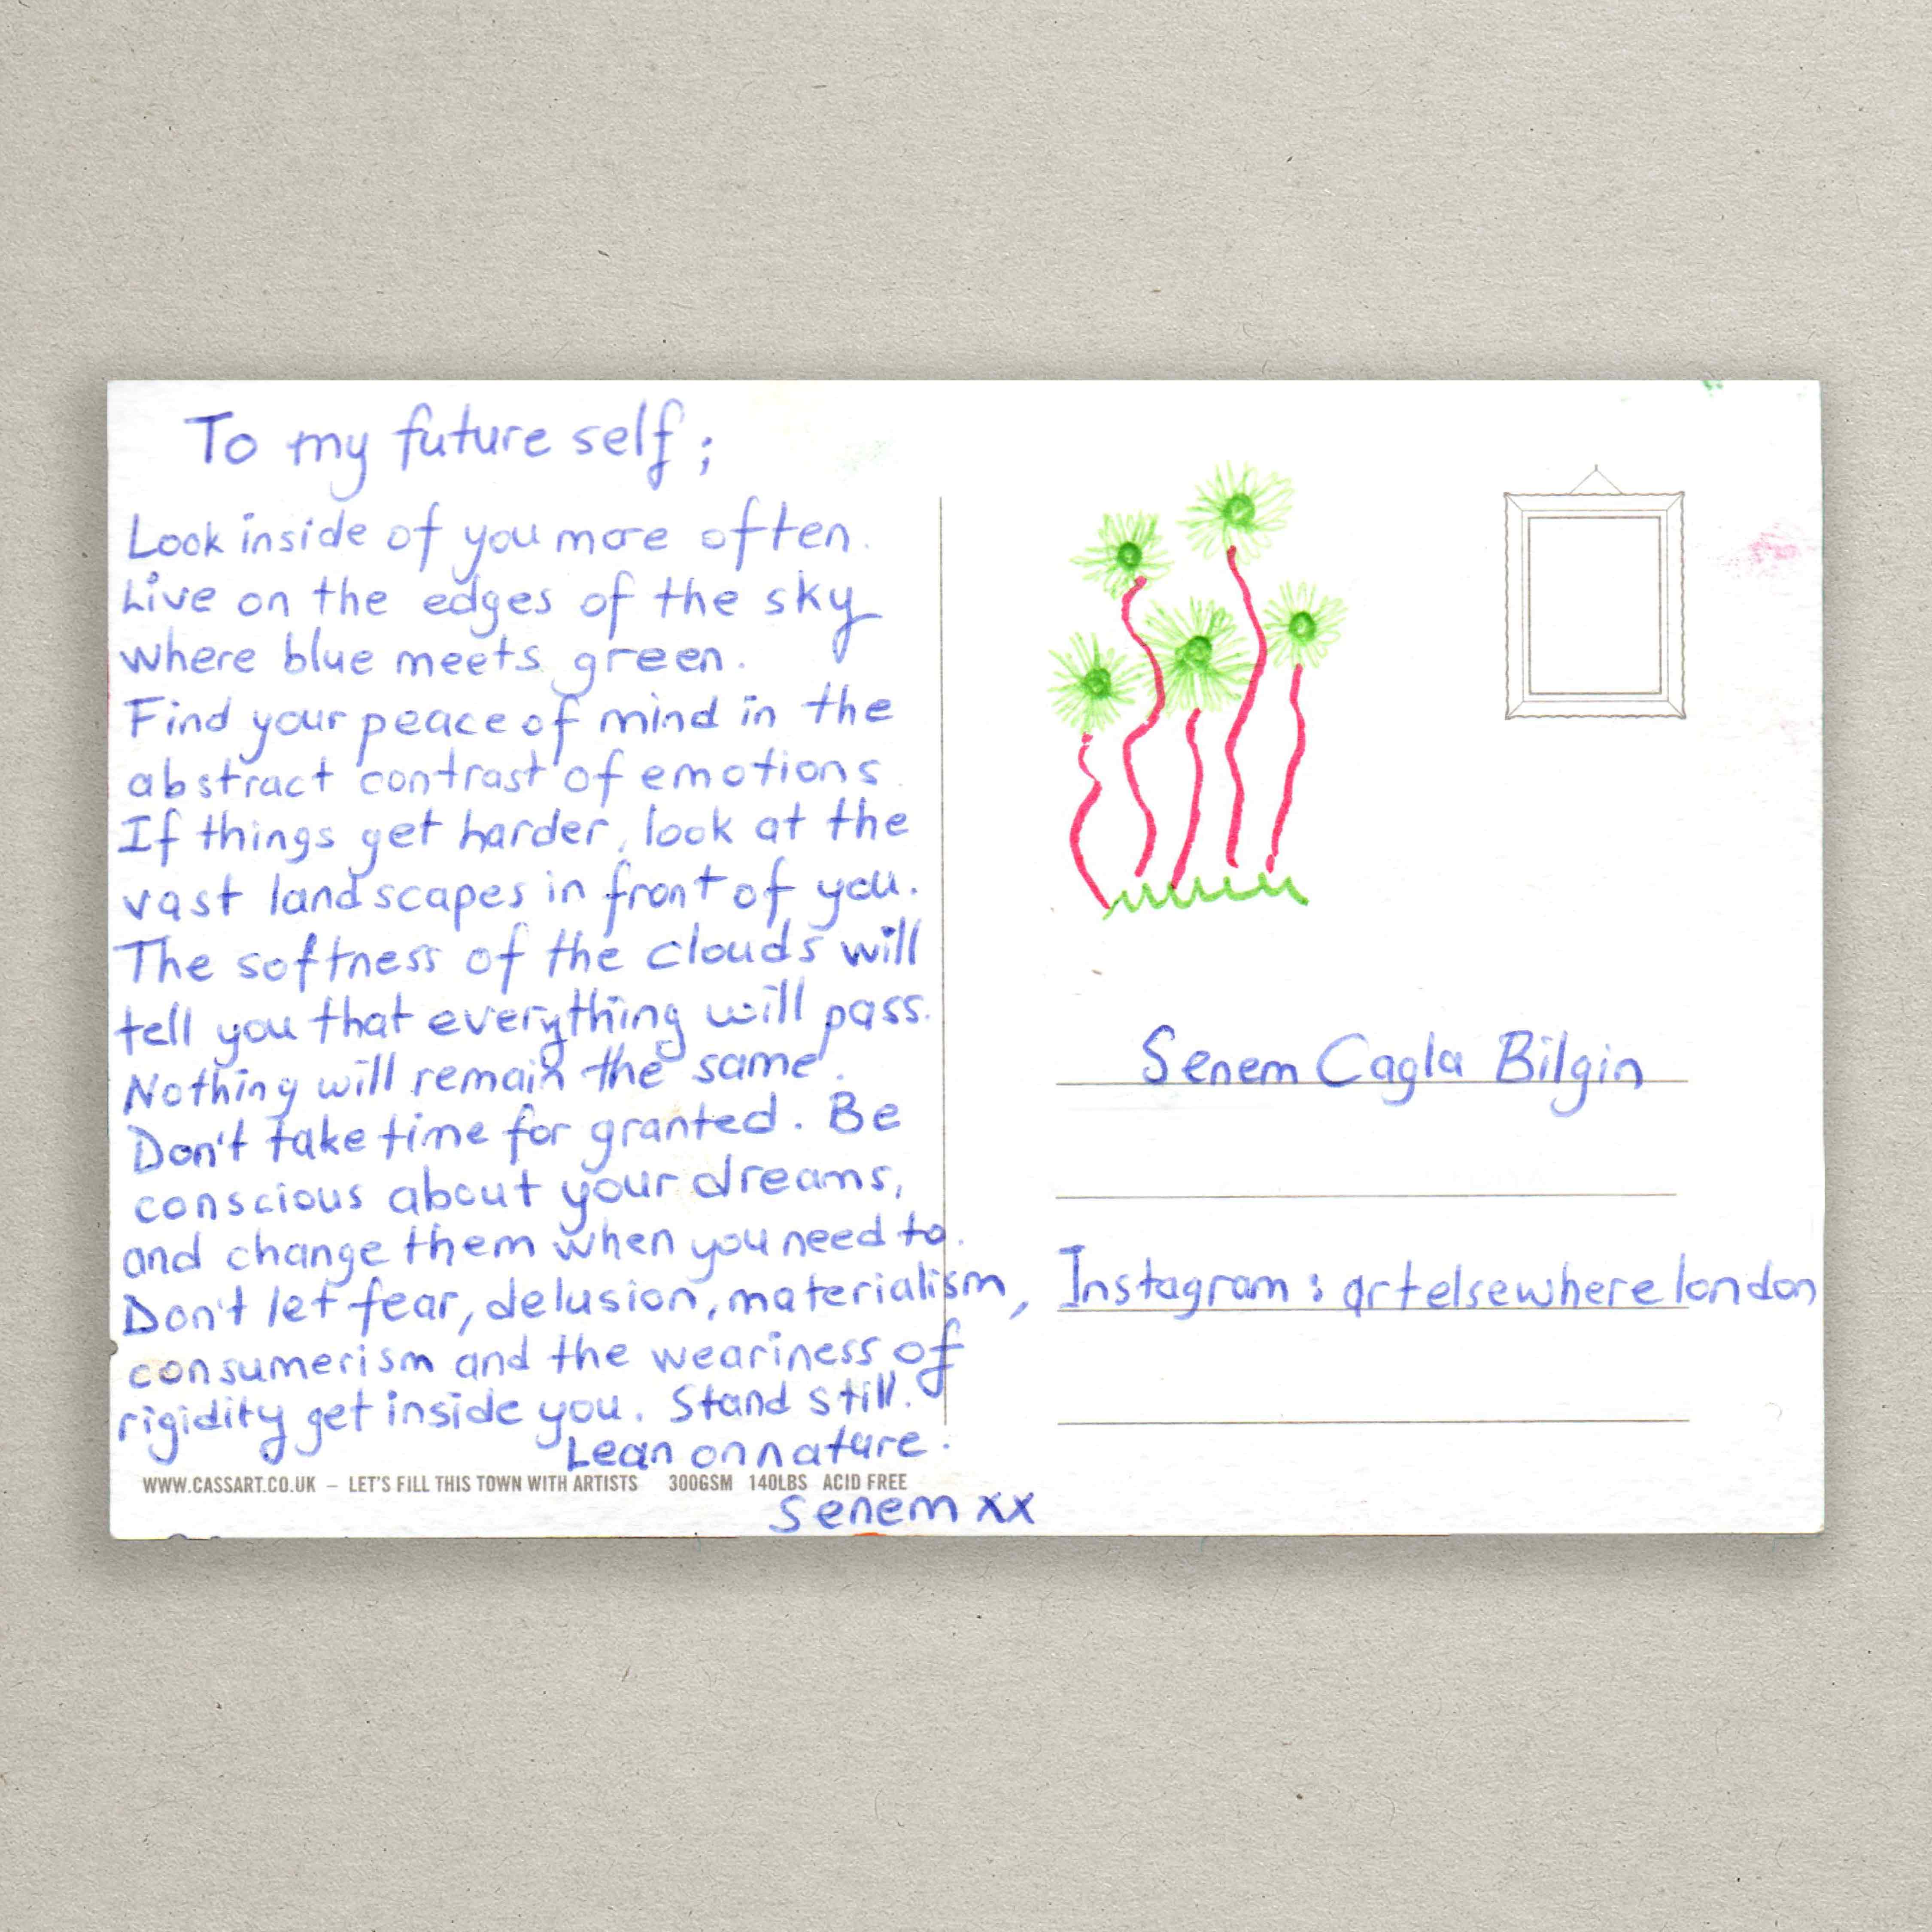 To my future self;
Look inside of you more often.
Live on the edges of the sky
where blue meets green.
Find your peace of mind in the
abstract contrast of emotions.
If things get harder, look at the
vast landscapes in front of you.
The softness of the clouds will
tell you that everything will pass.
Nothing will remain the same.
Don't take time for granted. Be
conscious about your dreams,
and change them when you need to.
Don't let fear, delusion, materialism,
consumerism and the weariness of
rigidity get inside you. Stand still.
Lean on nature.
WWW.CASSART.CO.UK – LET'S FILL THIS TOWN WITH ARTISTS 300GSM 140LBS ACID FREE
Senem xx
Senem Cagla Bilgin
Instagram: artelsewherelondon